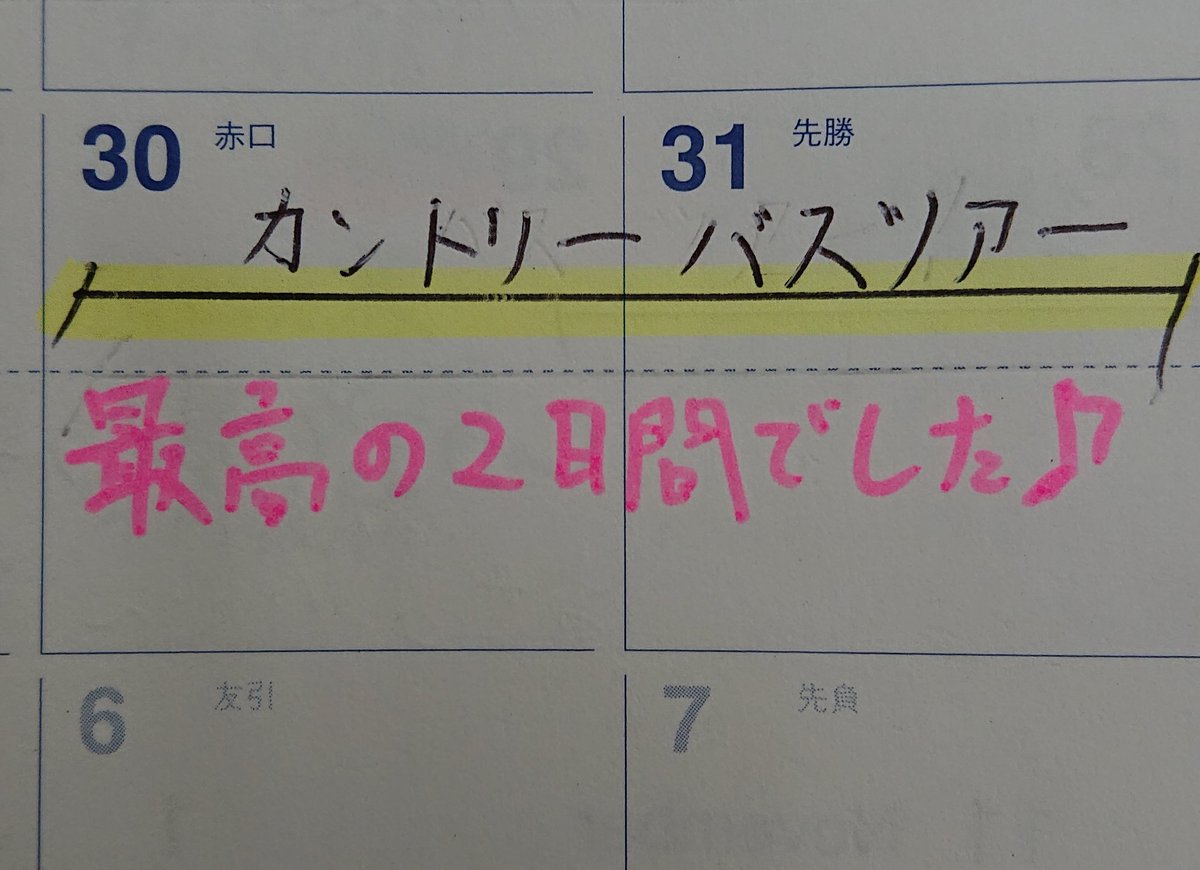 30 赤口 31 先勝
カントリーバスツアー
最高の2日間でした♪
6 友引 7 先負